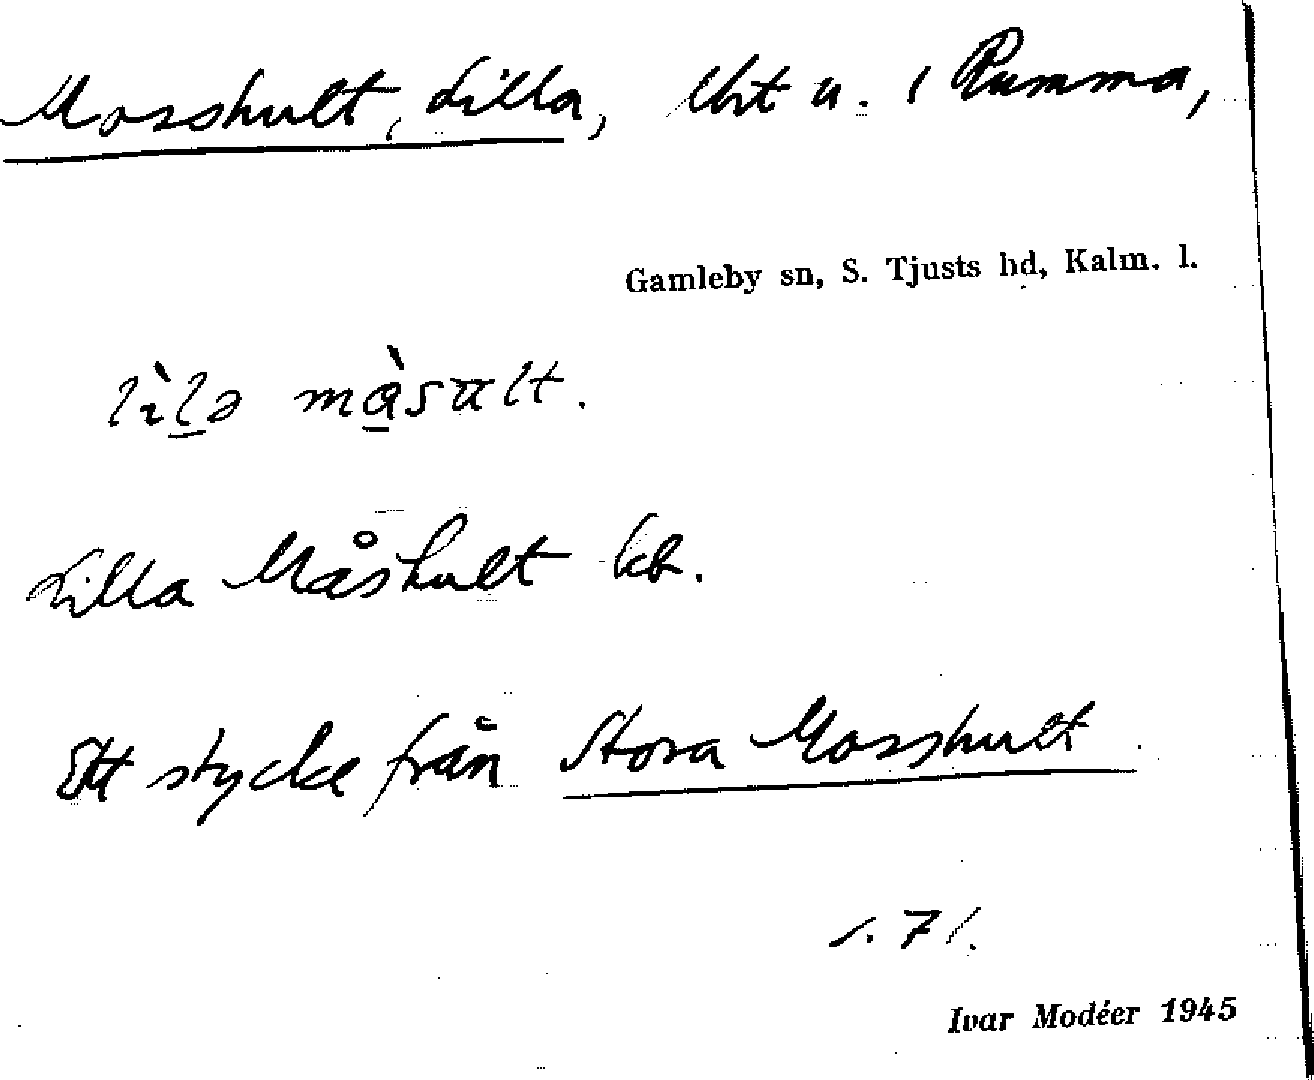 Mosshult, Lilla, lht u. / Rumma,
Gamleby sn, S. Tjusts hd, Kalm. l.
lìlə màsult.
Lilla Måshult kb.
Ett stycke från Stora Mosshult
s. 71.
Ivar Modéer 1945